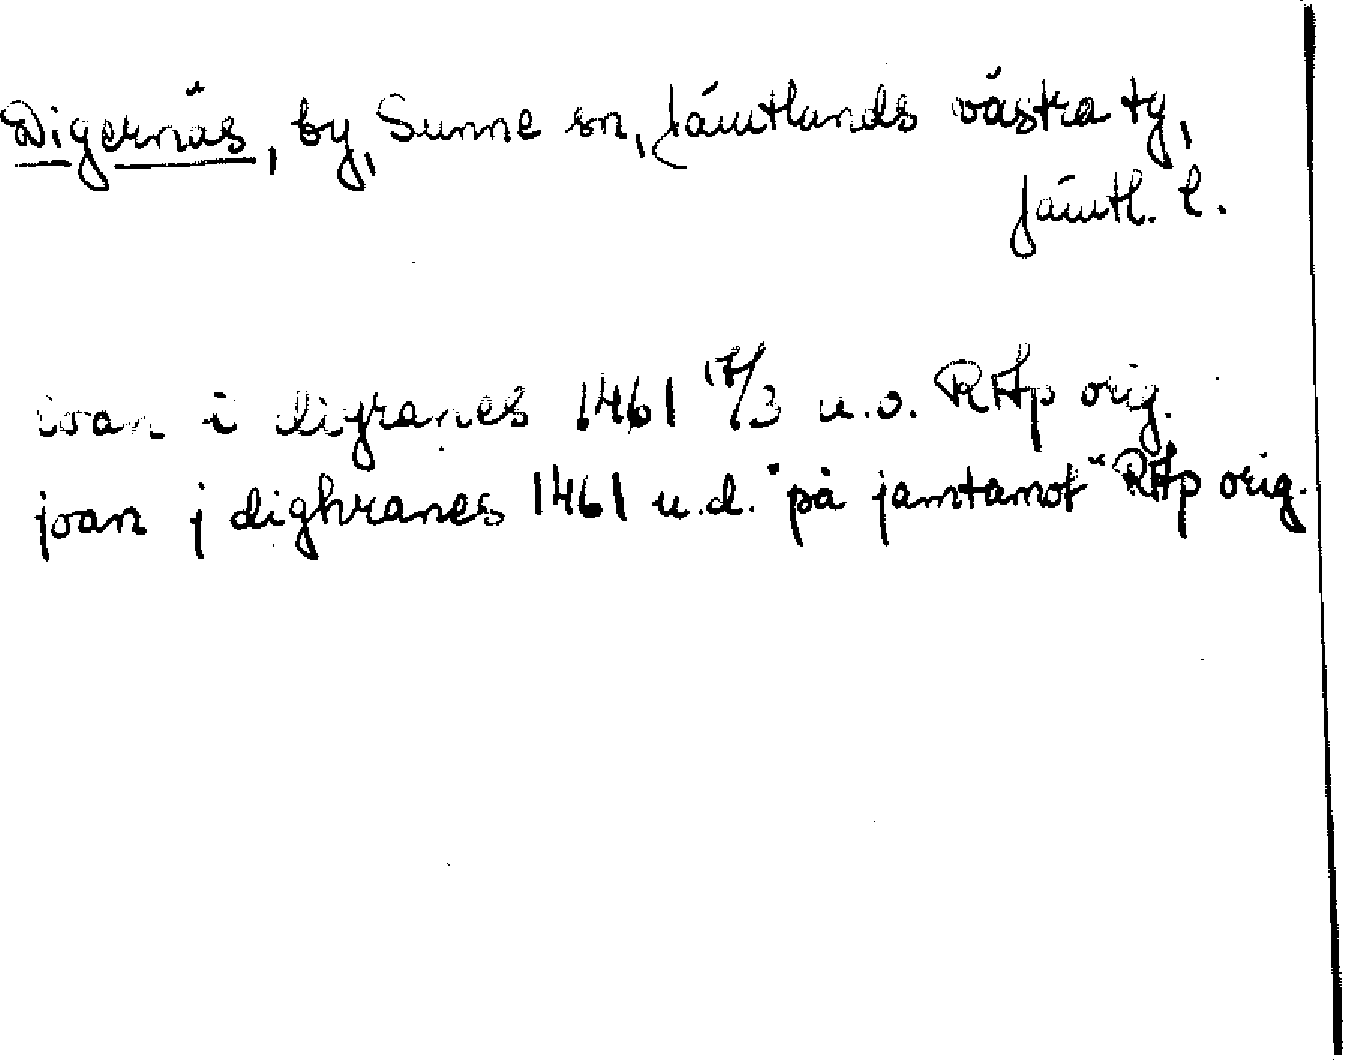 Digernäs, by, Sunne sn, Jämtlands västra tg,
Jämtl. l.
ioan i digranes 1461 17/3 u.o. RAp orig.
joan j dighranes 1461 u.d. "på jamtamot" RAp orig.